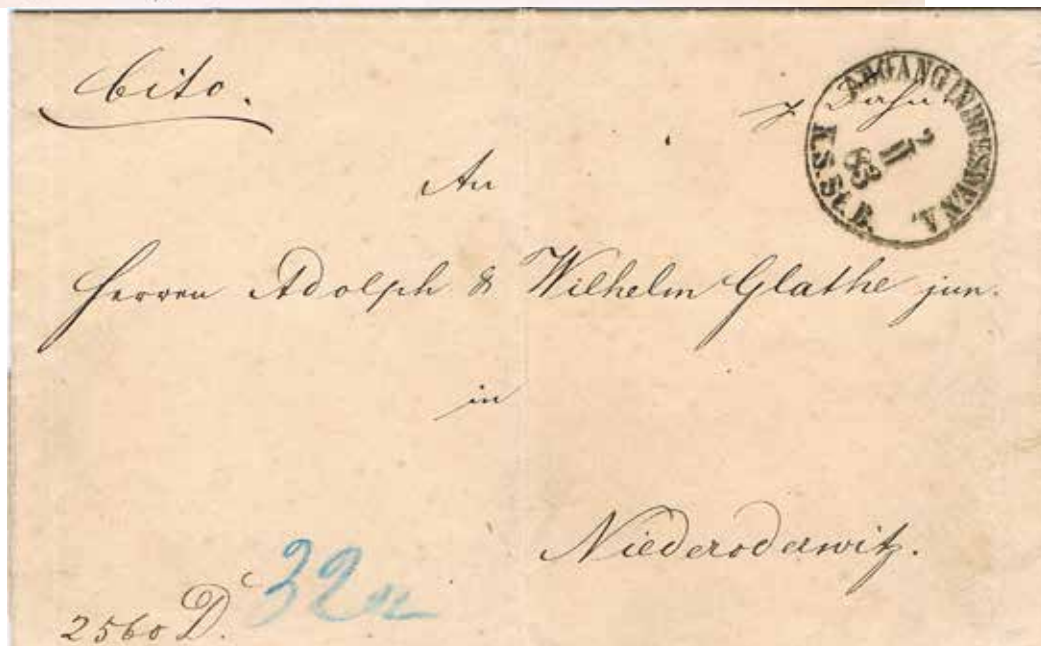 Cito.
Bahn
ABGANG IN DRESDEN A.
2
II
63
K.S.St.B.
An
Herren Adolph & Wilhelm Glathe jun.
in
Niederoderwitz.
32
2560 D.